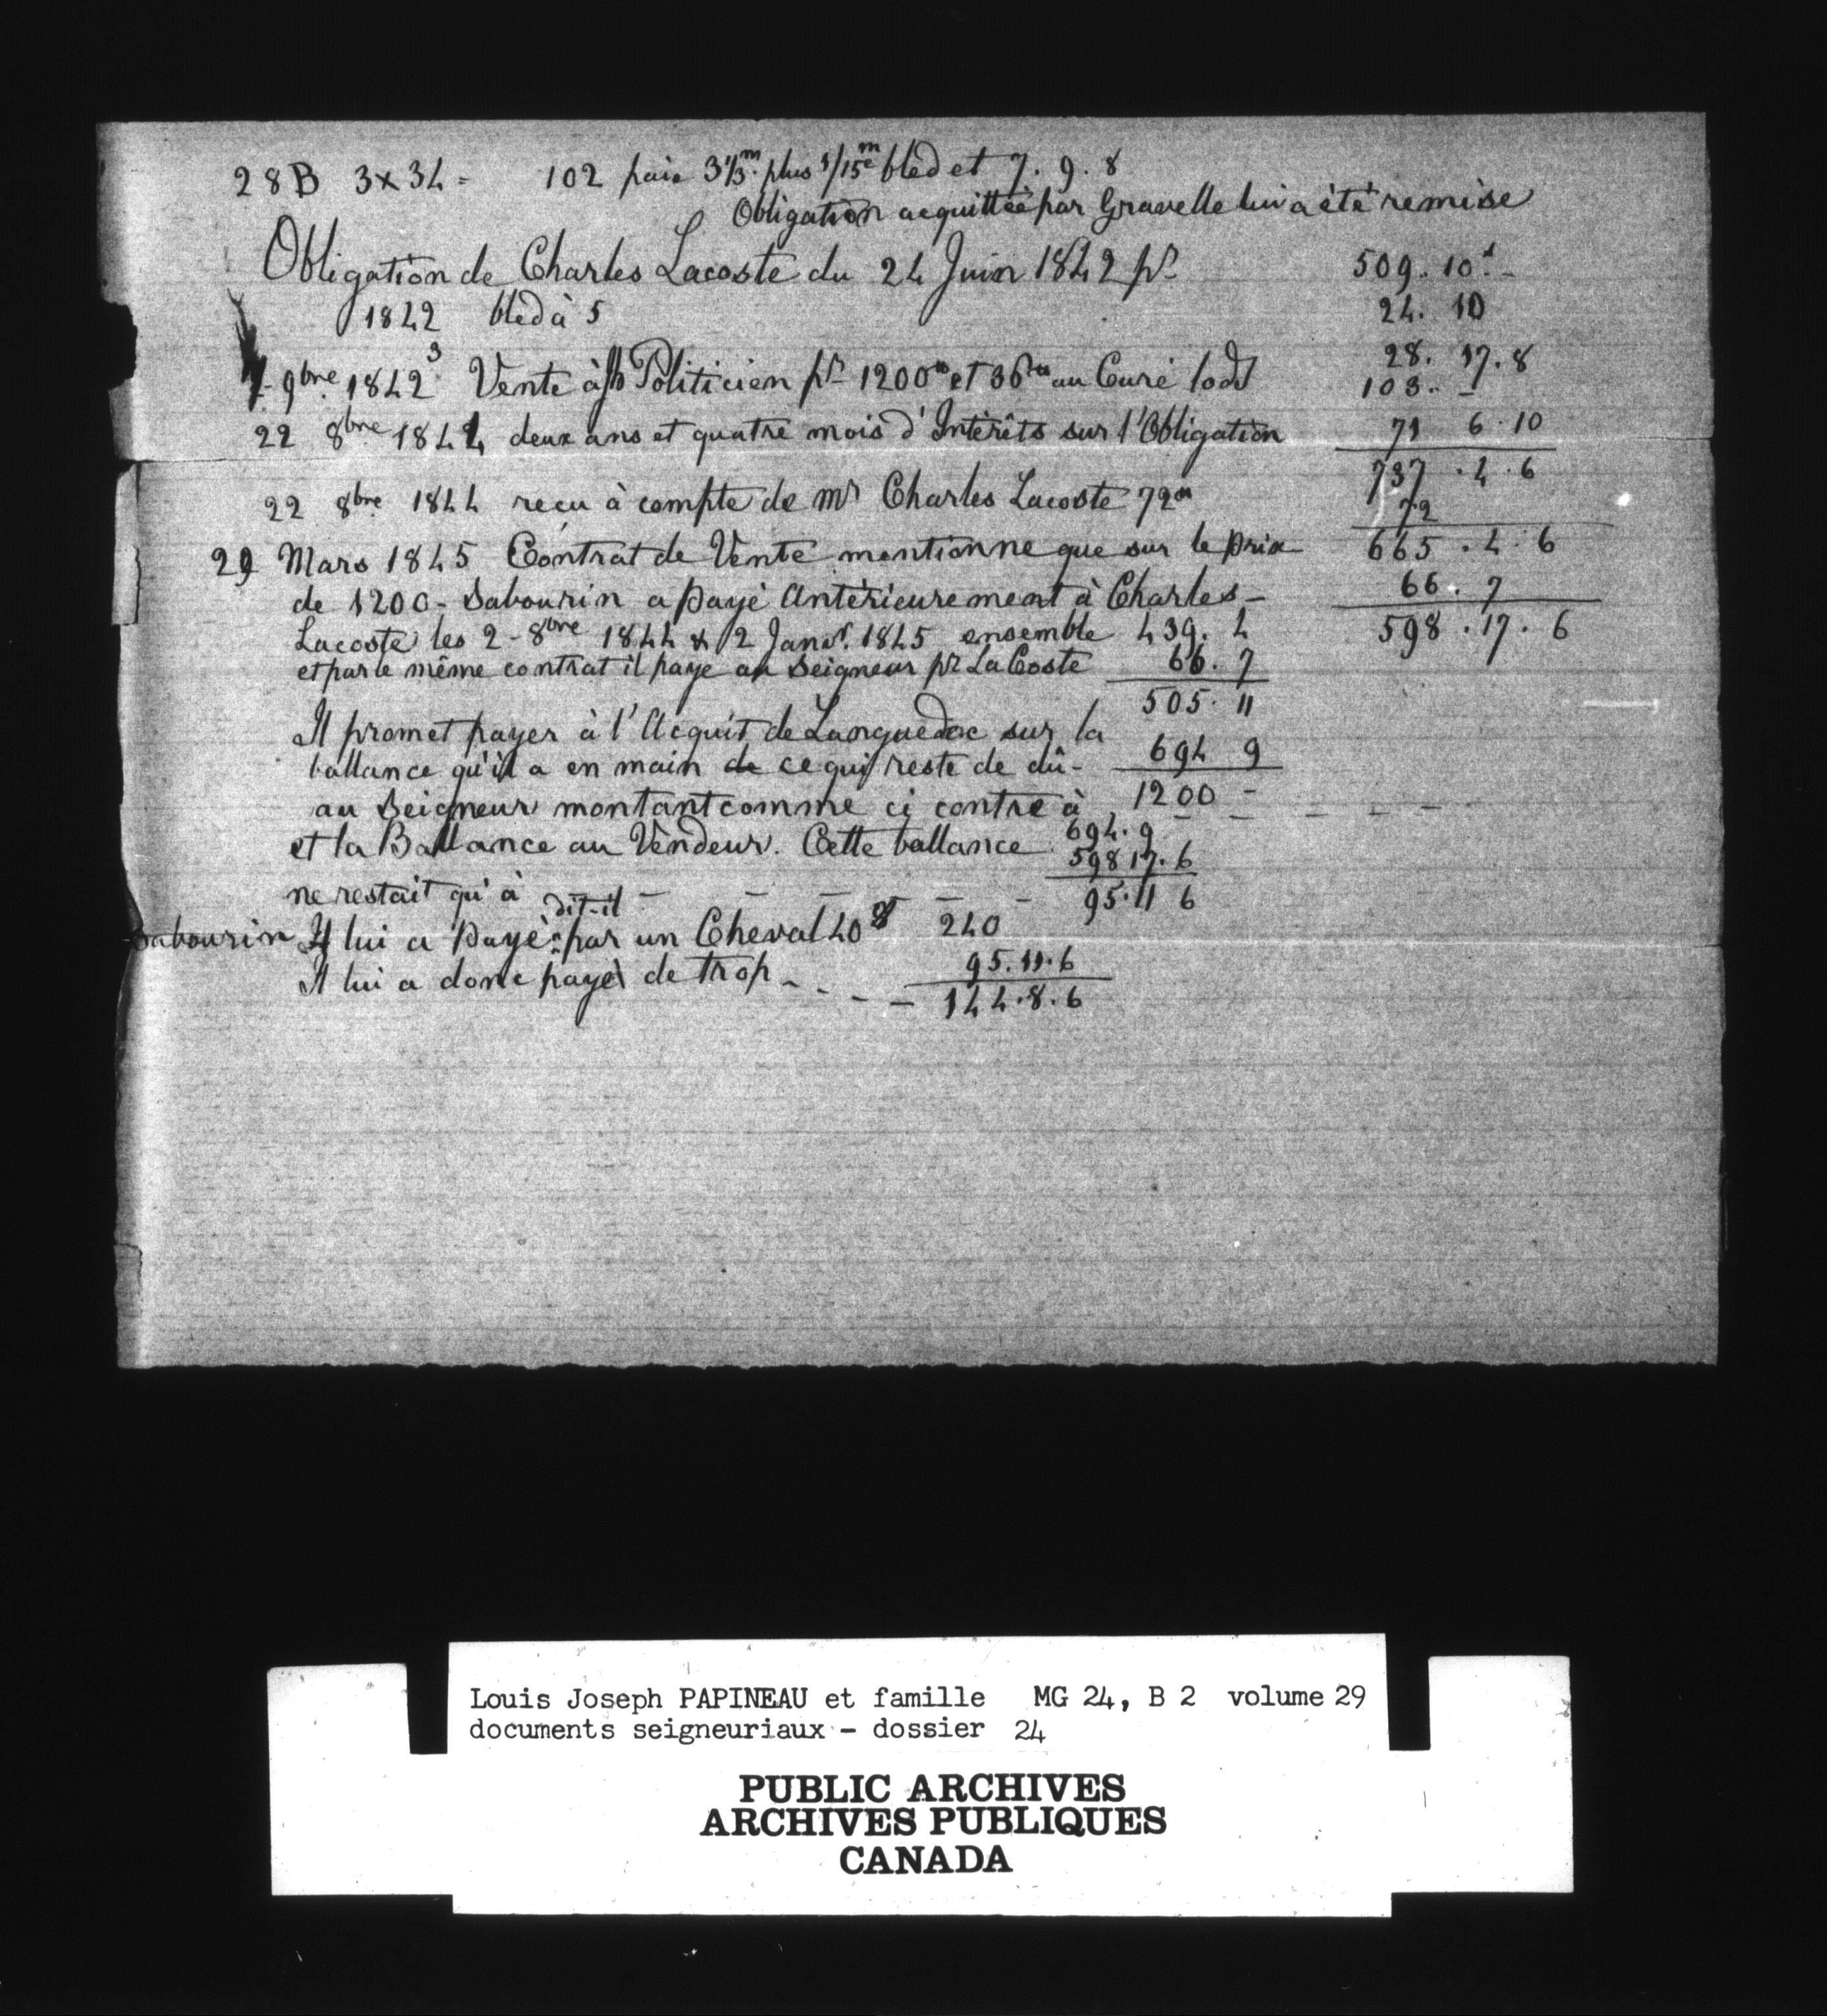 28 B 3x34 = 102 paie 3 1/3 m. plus 1/15e m bled et 7. 9. 8
Obligation acquittée par Gravelle lui a été remise
Obligation de Charles Lacoste du 24 Juin 1842 pr 509. 10 s -
1842 bled à 5 24. 10
28. 17. 8
9bre 1842 3 Vente à Politicien pr 1200 et 36 au Curé lods 103. -
22 8bre 1844 deux ans et quatre mois d'Intérêts sur l'Obligation 71 6. 10
737. 4. 6
22 8bre 1844 reçu à compte de Mr Charles Lacoste 72 72
29 Mars 1845 Contrat de Vente mentionne que sur le prix 665. 4. 6
de 1200 - Sabourin a payé Antérieurement à Charles - 66. 7
Lacoste les 2 - 8bre 1844 & 2 Janvr. 1845 ensemble 439. 4 598. 17. 6
et par le même contrat il paye au Seigneur pr LaCoste 66. 7
505. 11
Il promet payer à l'Acquit de Languedoc sur la
ballance qu'il a en main de ce qui reste de dû - 694 9
au Seigneur montant comme ci contre à 1200 -
et la Ballance au Vendeur. Cette ballance 694. 9
598 17. 6
ne restait qu'à - - - - - 95. 11 6
dit-il
Sabourin Il lui a payé par un Cheval 40 $ 240
95. 11. 6
Il lui a donc payé de trop - - - - 144. 8. 6
Louis Joseph PAPINEAU et famille MG 24, B 2 volume 29
documents seigneuriaux - dossier 24
PUBLIC ARCHIVES
ARCHIVES PUBLIQUES
CANADA